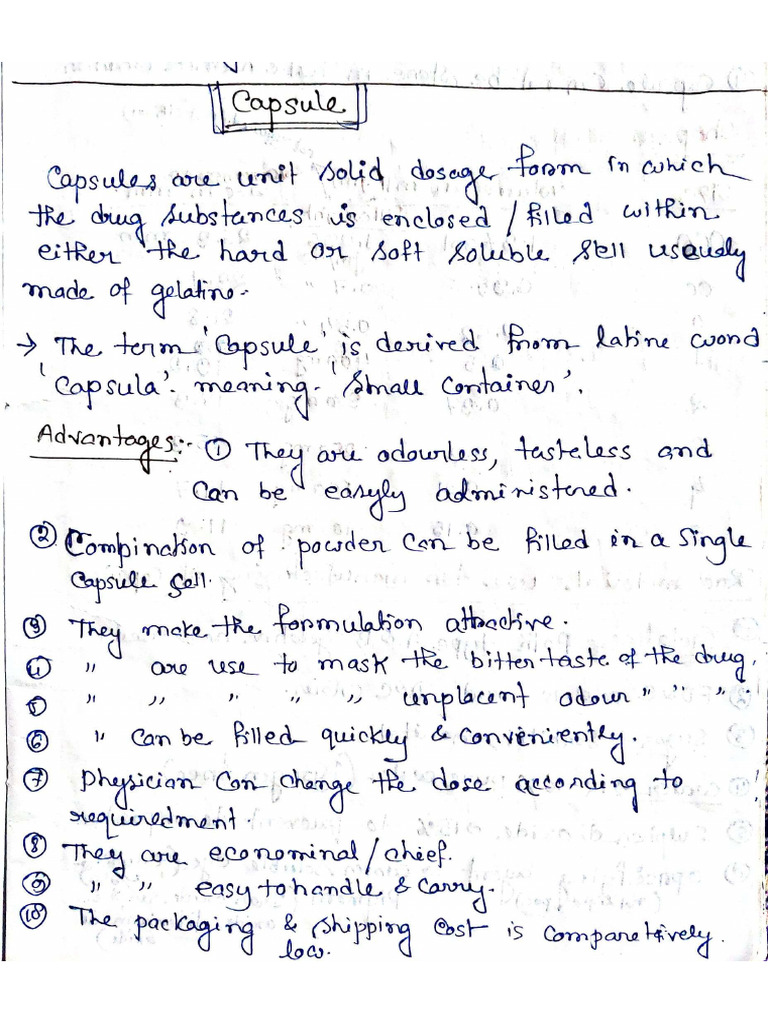 Capsule
Capsules are unit solid dosage form in which
the drug substances is enclosed / filled within
either the hard or soft soluble sell useually
made of gelatine.
→ The term 'Capsule' is derived from latine word
'Capsula'. meaning. 'Small Container'.
Advantages:- ① They are odourless, tasteless and
Can be easyly administered.
② Combination of powder can be filled in a single
Capsule sell.
③ They make the formulation attractive.
④ " are use to mask the bitter taste of the drug.
⑤ " " " " " unplacent odour " " ".
⑥ " can be filled quickly & conveniently.
⑦ Physician can change the dose according to
requiredment.
⑧ They are econominal / chief.
⑨ " " easy to handle & carry.
⑩ The packaging & shipping cost is comparetively
low.